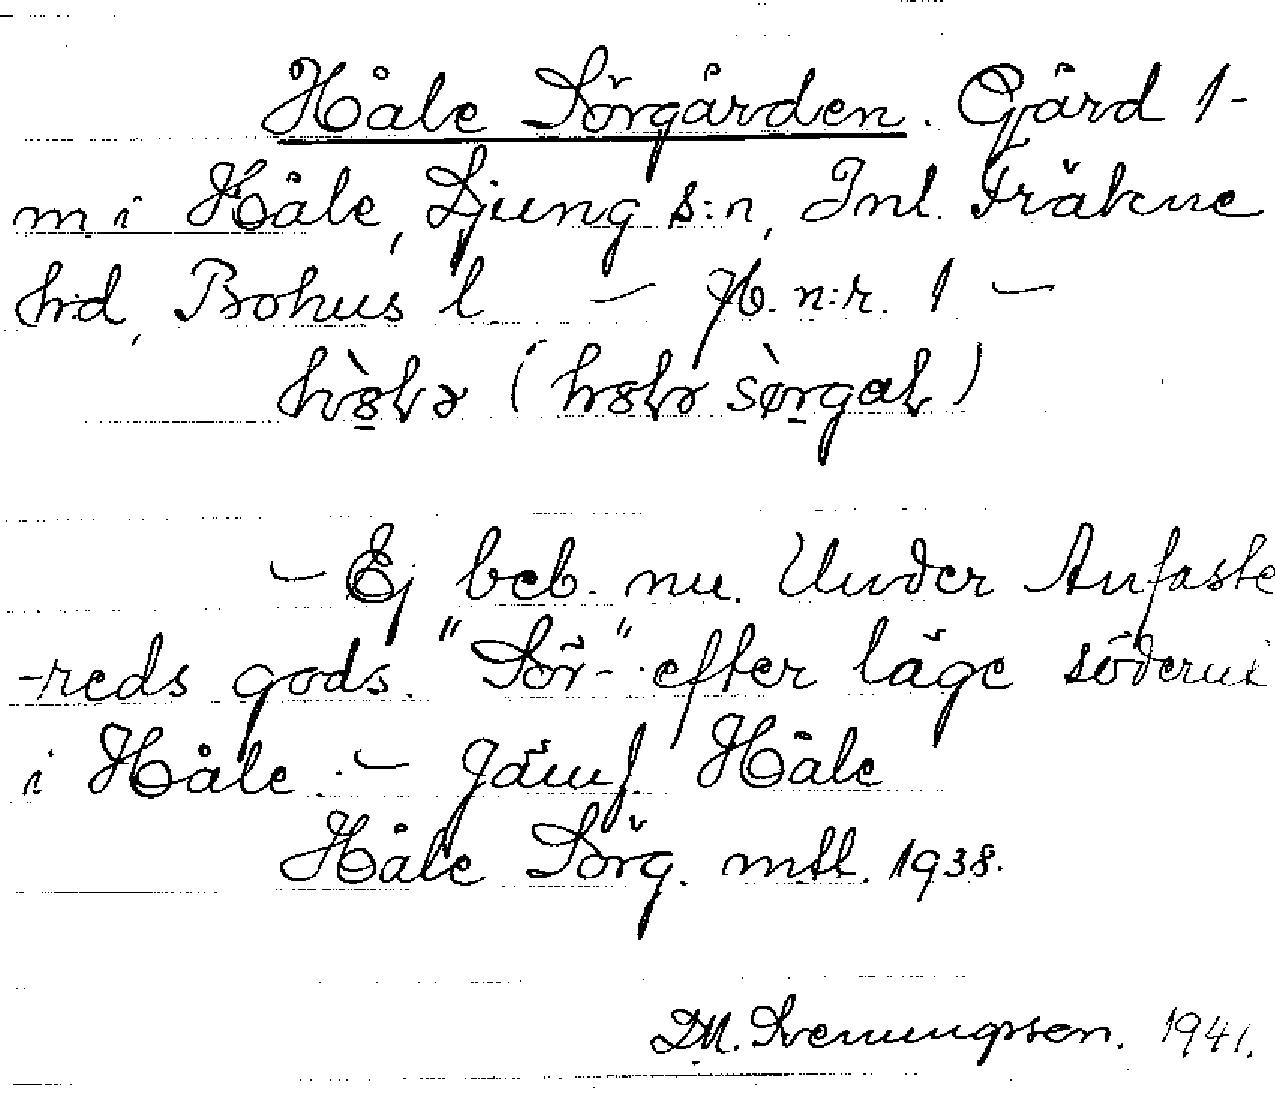 Håle Sörgården. Gård 1-
m i Håle, Ljung s:n, Inl. Fräkne
hrd, Bohus l — Jb. n:r. 1 —
— Ej beb. nu. Under Anfaste
-reds gods. "Sör-" efter läge söderut
i Håle. — Jämf. Håle
Håle Sörg. mtl. 1938.
D.M. Svenningsson. 1941.